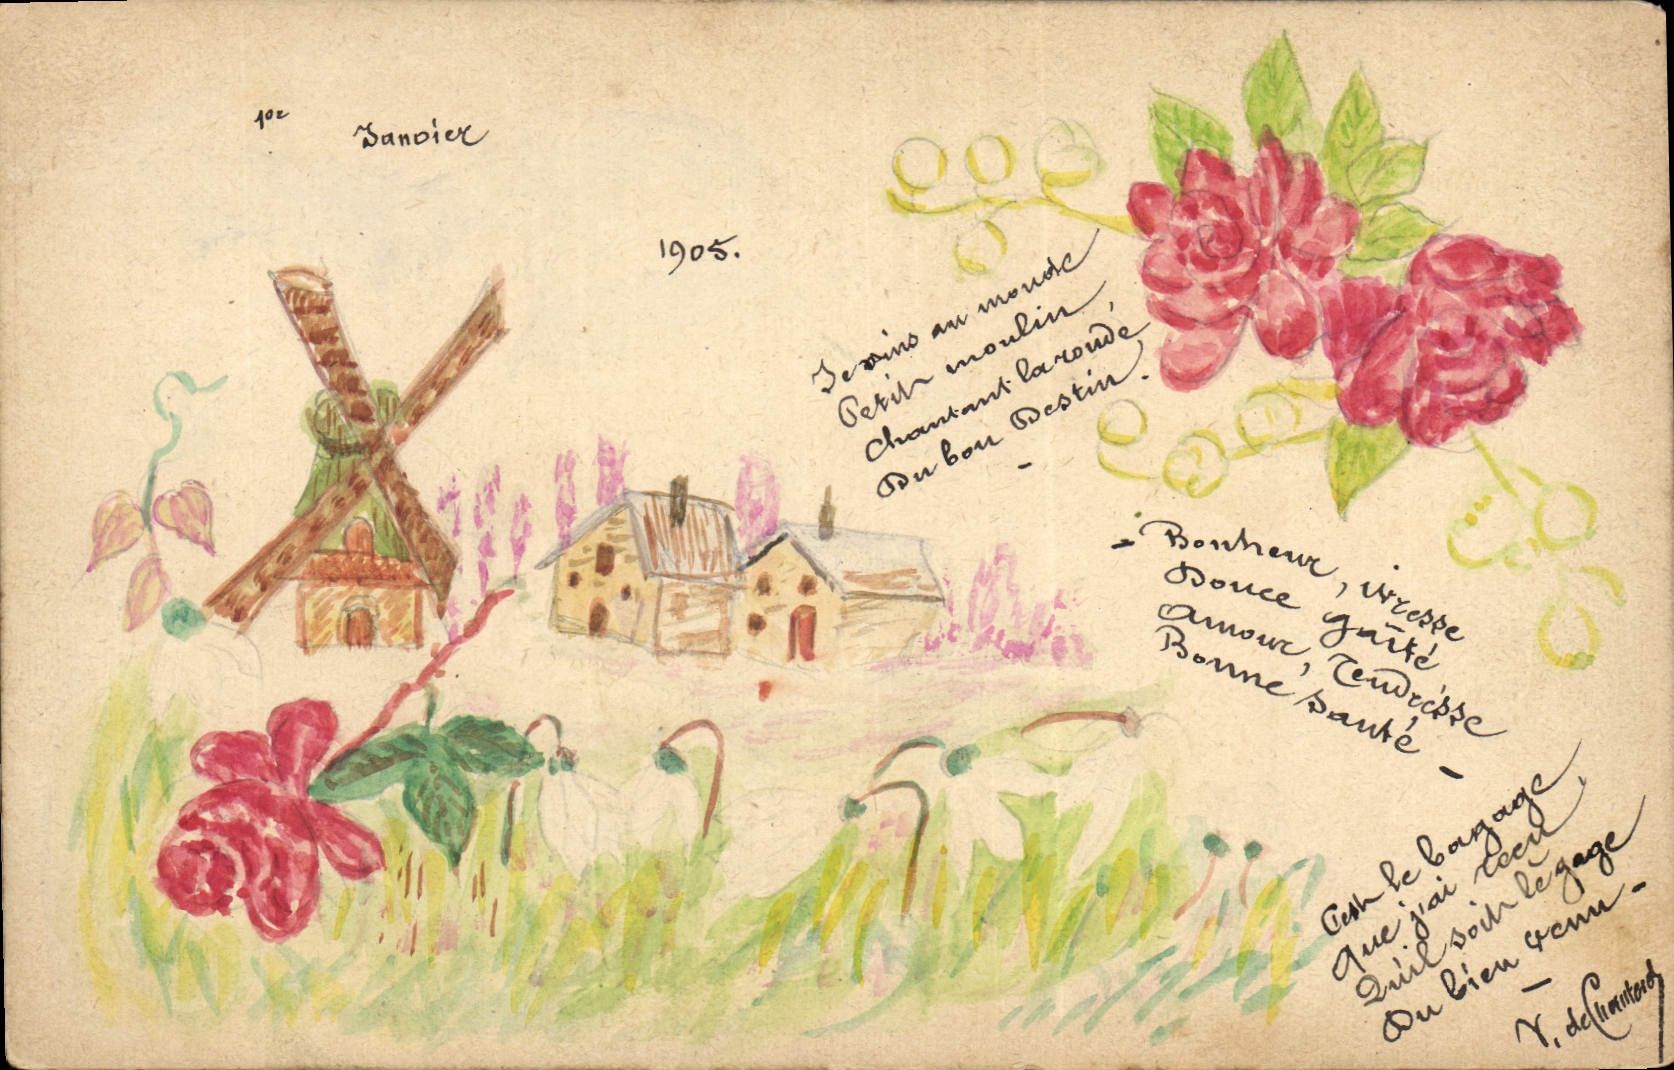 1er Janvier
1905.
Je vins au monde
Petit moulin,
Chantant la ronde,
Du bon Destin.
-
- Bonheur, ivresse
Douce gaîté
Amour, Tendresse
Bonne santé -
C'est le bagage
Que j'ai reçu,
Qu'il soit le gage
Du bien venu -
-
V. de